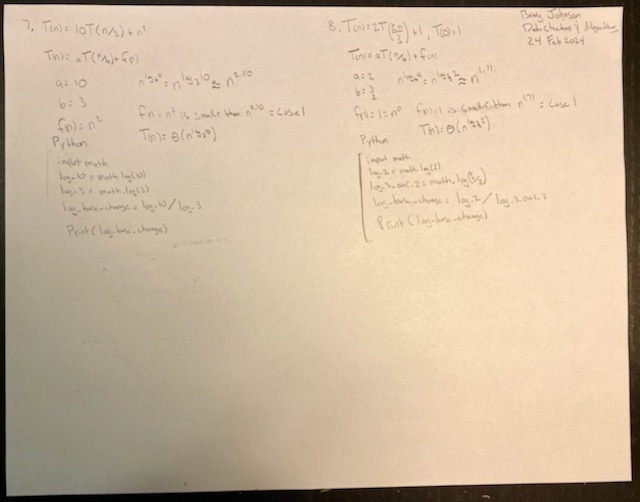 Johnson
Data Structures & Algorithms
24 Feb 2024
7. T(n) = 10T(n/3) + n²
T(n) = aT(n/b) + f(n)
a = 10
b = 3
n^log_b a = n^log_3 10 ≈ n^2.10
f(n) = n²
f n = n² is smaller than n^2.10 = Case 1
T(n) = Θ(n^log_3 10)
Python
import math
log_10 = math.log(10)
log_3 = math.log(3)
log_base_change = log_10 / log_3
Print(log_base_change)
8. T(n) = 2T(2n/3) + 1, T(0) = 1
T(n) = aT(n/b) + f(n)
a = 2
b = 3/2
≈ n^1.71
f(n) = 1 = n⁰
f(n) = 1 is smaller than n^1.71 = Case 1
Python
import math
log_2 = math.log(2)
log_base_change = log_2 /
Print(log_base_change)